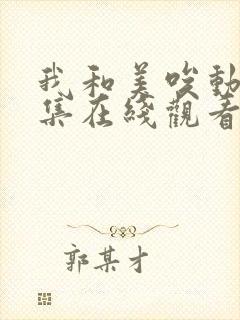 我和美唉動
集在綫觀看
郭某才